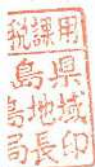 税課用
島県
島地域
局長印